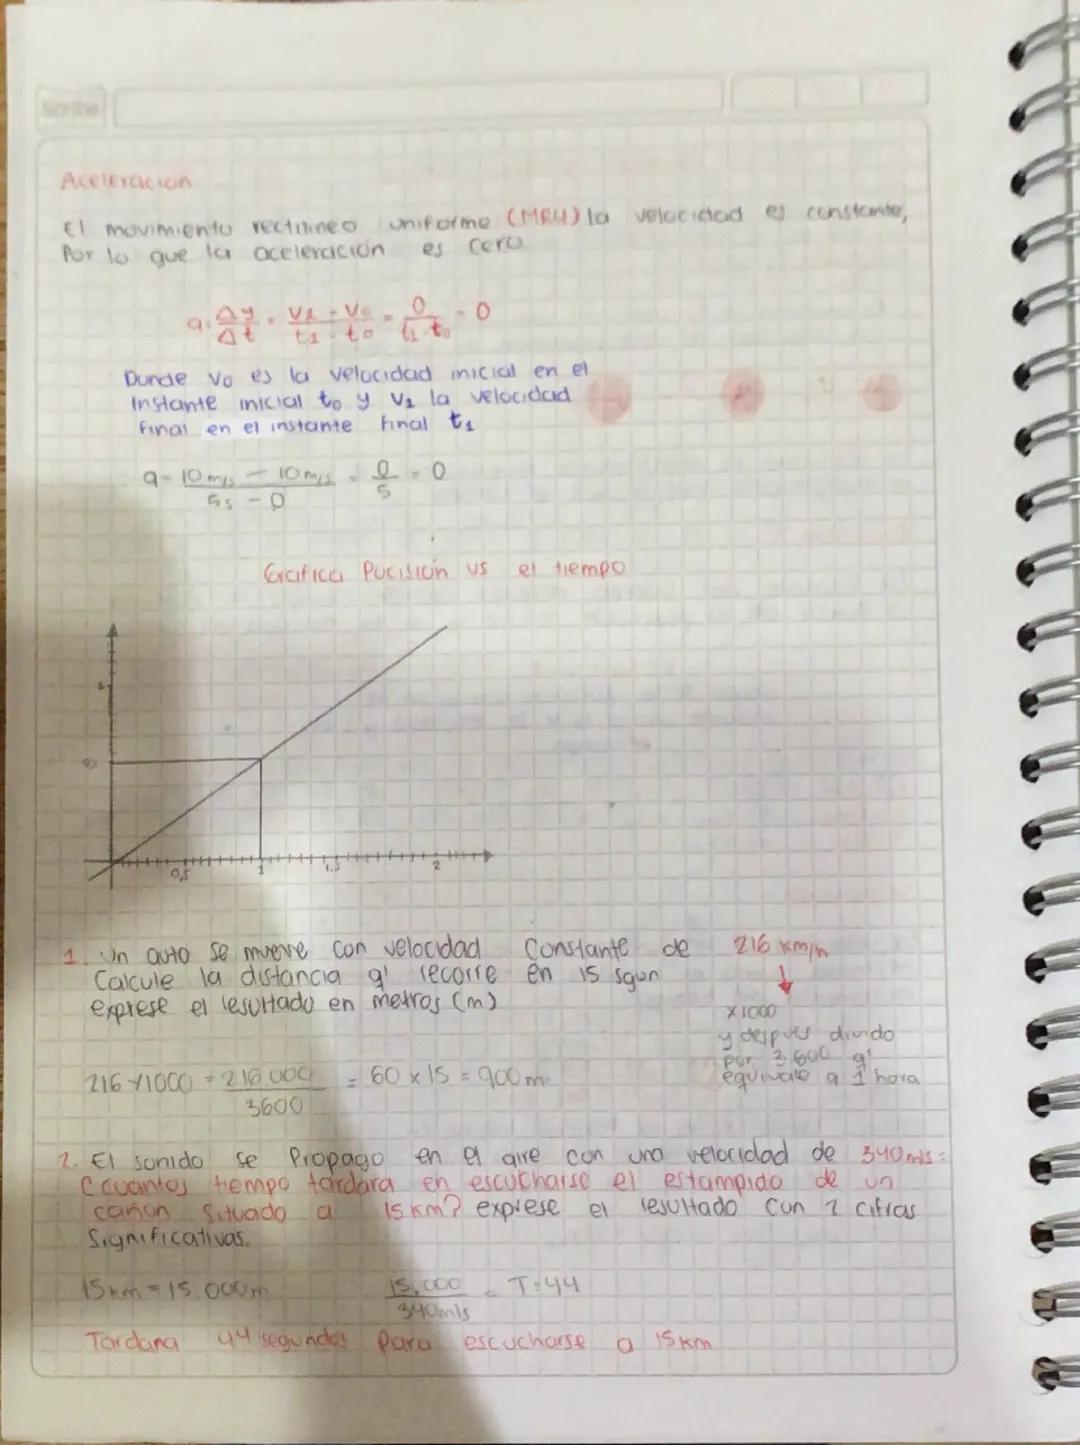 Scribe
Aceleracion
El movimiento rectilineo uniforme (MRU) la velocidad es constante,
Por lo que la aceleración es cero
a = Δy/Δt = v1 - v0/t1 - t0 = 0/t1 - t0 = 0
Donde v0 es la velocidad inicial en el
Instante inicial t0 y v1 la velocidad
Final en el instante Final t1
a = 10 m/s - 10 m/s/5s - 0 = 0/5 = 0
Grafica Pocision vs el tiempo
1
0,5 1 1.5 2
1. Un auto se mueve con velocidad Constante de 216 km/h
Calcule la distancia q' recorre en 15 sgun
exprese el resultado en metros (m)
x1000
y despues divido
por 3,600 q'
equivale a 1 hora
216 x 1000 = 216.000/3600 = 60 x 15 = 900 m
2. El sonido se Propago en el aire con una velocidad de 340 m/s =
Ccuantos tiempo tardara en escucharse el estampido de un
cañon Situado a 15 km? exprese el resultado Con 2 cifras
Significativas.
15 km = 15.000m 15.000/340m/s = T=44
Tardara 44 segundos para escucharse a 15 km